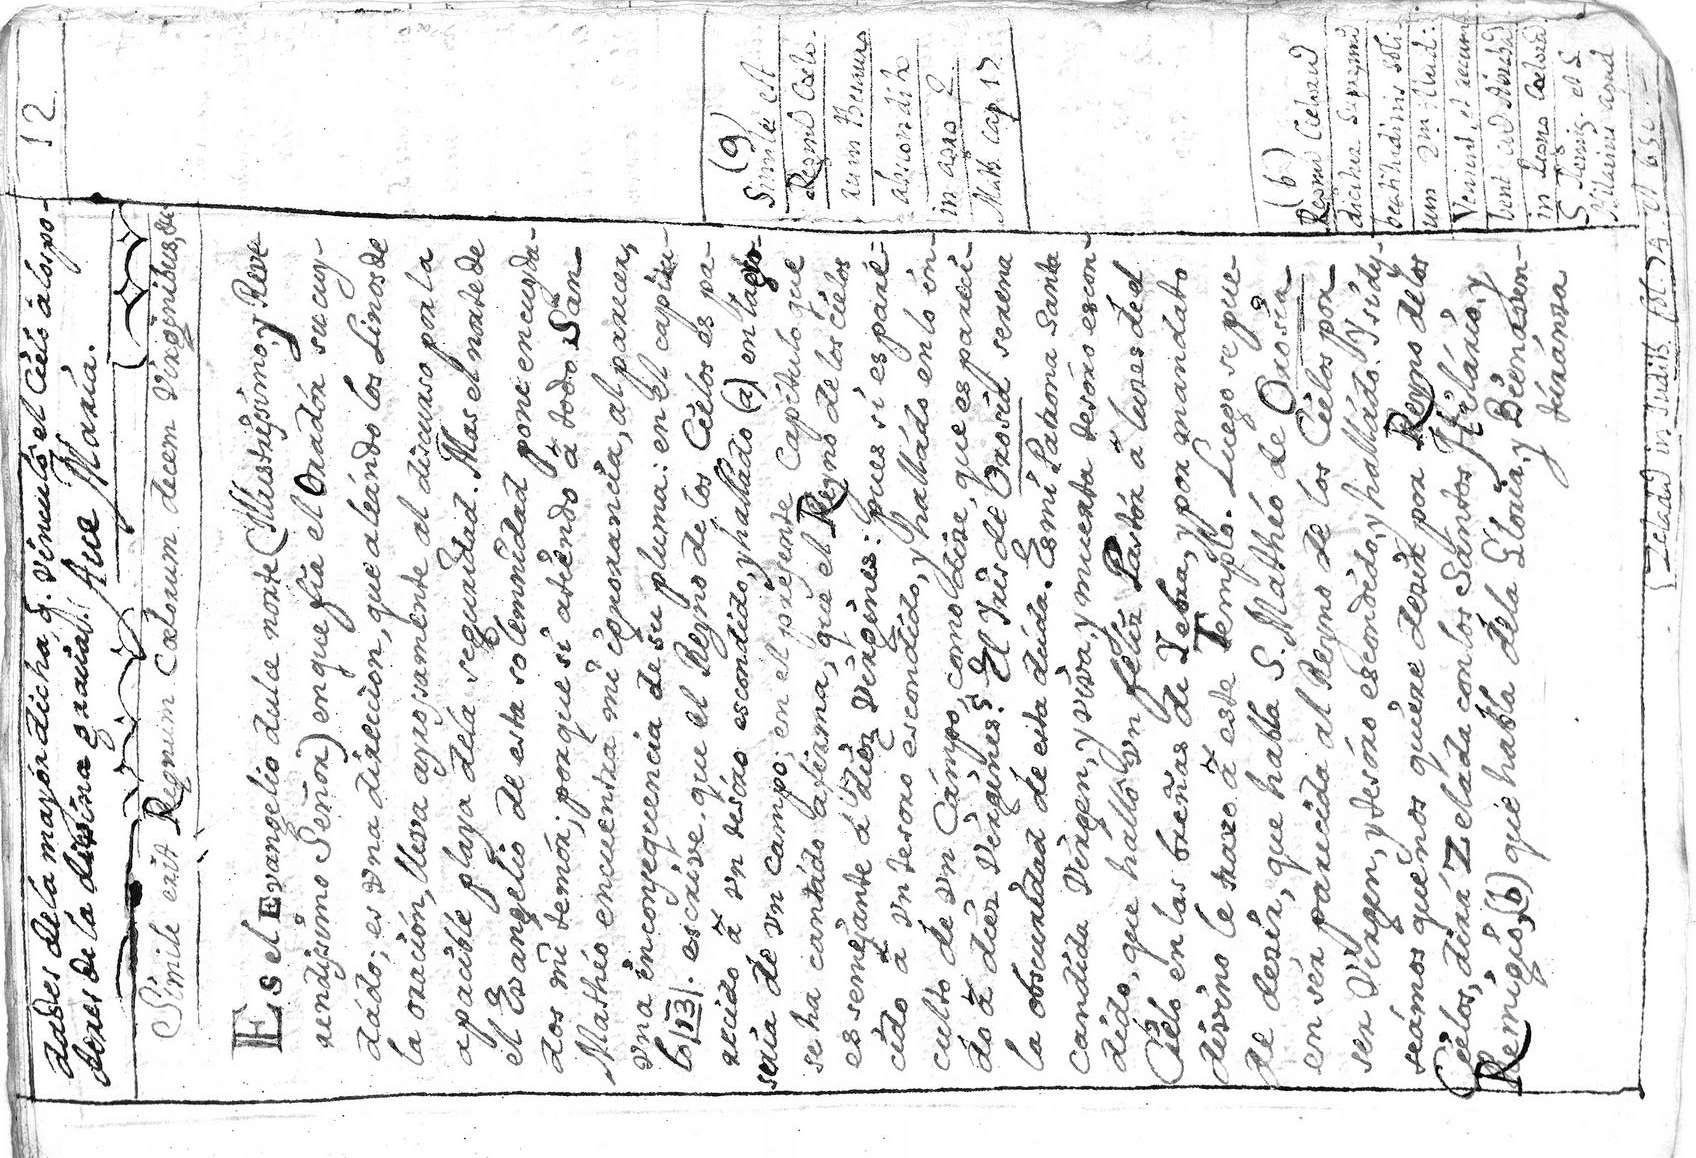 12.
dades de la mayór dicha, q. vinculó el Ciélo á los po-
deres de la divina gracia. Ave María.
Símile erit Regnum Cœlorum decem Virginibus, &c
Es el Evangelio dulce norte (Illustrissimo, y Reve
rendissimo Señor) en que fia el Oradór su cuy-
dádo; es vna direccion, que aleándo los linos de
la oración, lleva ayrosamente al discurso por la
apacible playa de la seguridad. Mas el norte de
el Evangelio de esta solemnidad pone en cuyda-
dos mi temór; porque si atiendo á todo San
Mathéo encuentra mi ignorancia, al parecer,
vna inconsequencia de su pluma: en el capitu-
lo 13. escrive, que el Reyno de los Ciélos es pa-
recido á vn tesóro escondido, y halládo (a) en la
de vn campo; en el presente Capítulo que
se ha cantádo afirma, que el Reyno de los Ciélos
es semejante á diéz Vírgines: pues si es pare-
cido á vn tesoro escondido, y halládo en lo ôn-
culto de vn Cámpo, como dize, que es pareci-
do á diez Vírgines? El Iris de Orosia serena
la obscuridad de esta duda. Es mi Patrona Santa
candida Virgen, y viva, y muerta tesoro escon-
dido, que halló vn feliz Pastór á luzes del
Ciélo en las breñas de Yebra, y por mandato
divino le traxo á este Templo. Luego se pue-
de desir, que habla S. Mathéo de Orosia
en sér parecida al Reyno de los Ciélos por
ser Vírgen, y tesóro escondido, y halládo. Y si dy-
seámos quéenos quiere desir por Reyno de los
Ciélos, dirá Zeláda con los Santos Hilário, y
Remigio, (b) que habla de la Gloria, y Bienaven-
turánza
(a)
Simile est
Regnũ Cœlo-
rum thesauro
abscondito
in agro &.
Math. cap 13.
(b)
Regnũ Cœlorũ
dicitur
beatitudinis
um illud:
Venient, et recum
bent cũ Abrahã
in Regno Cœlorũ
S. Remig. et S.
Hilarius apud
Zeladã in Judith fol. 24. et 630.